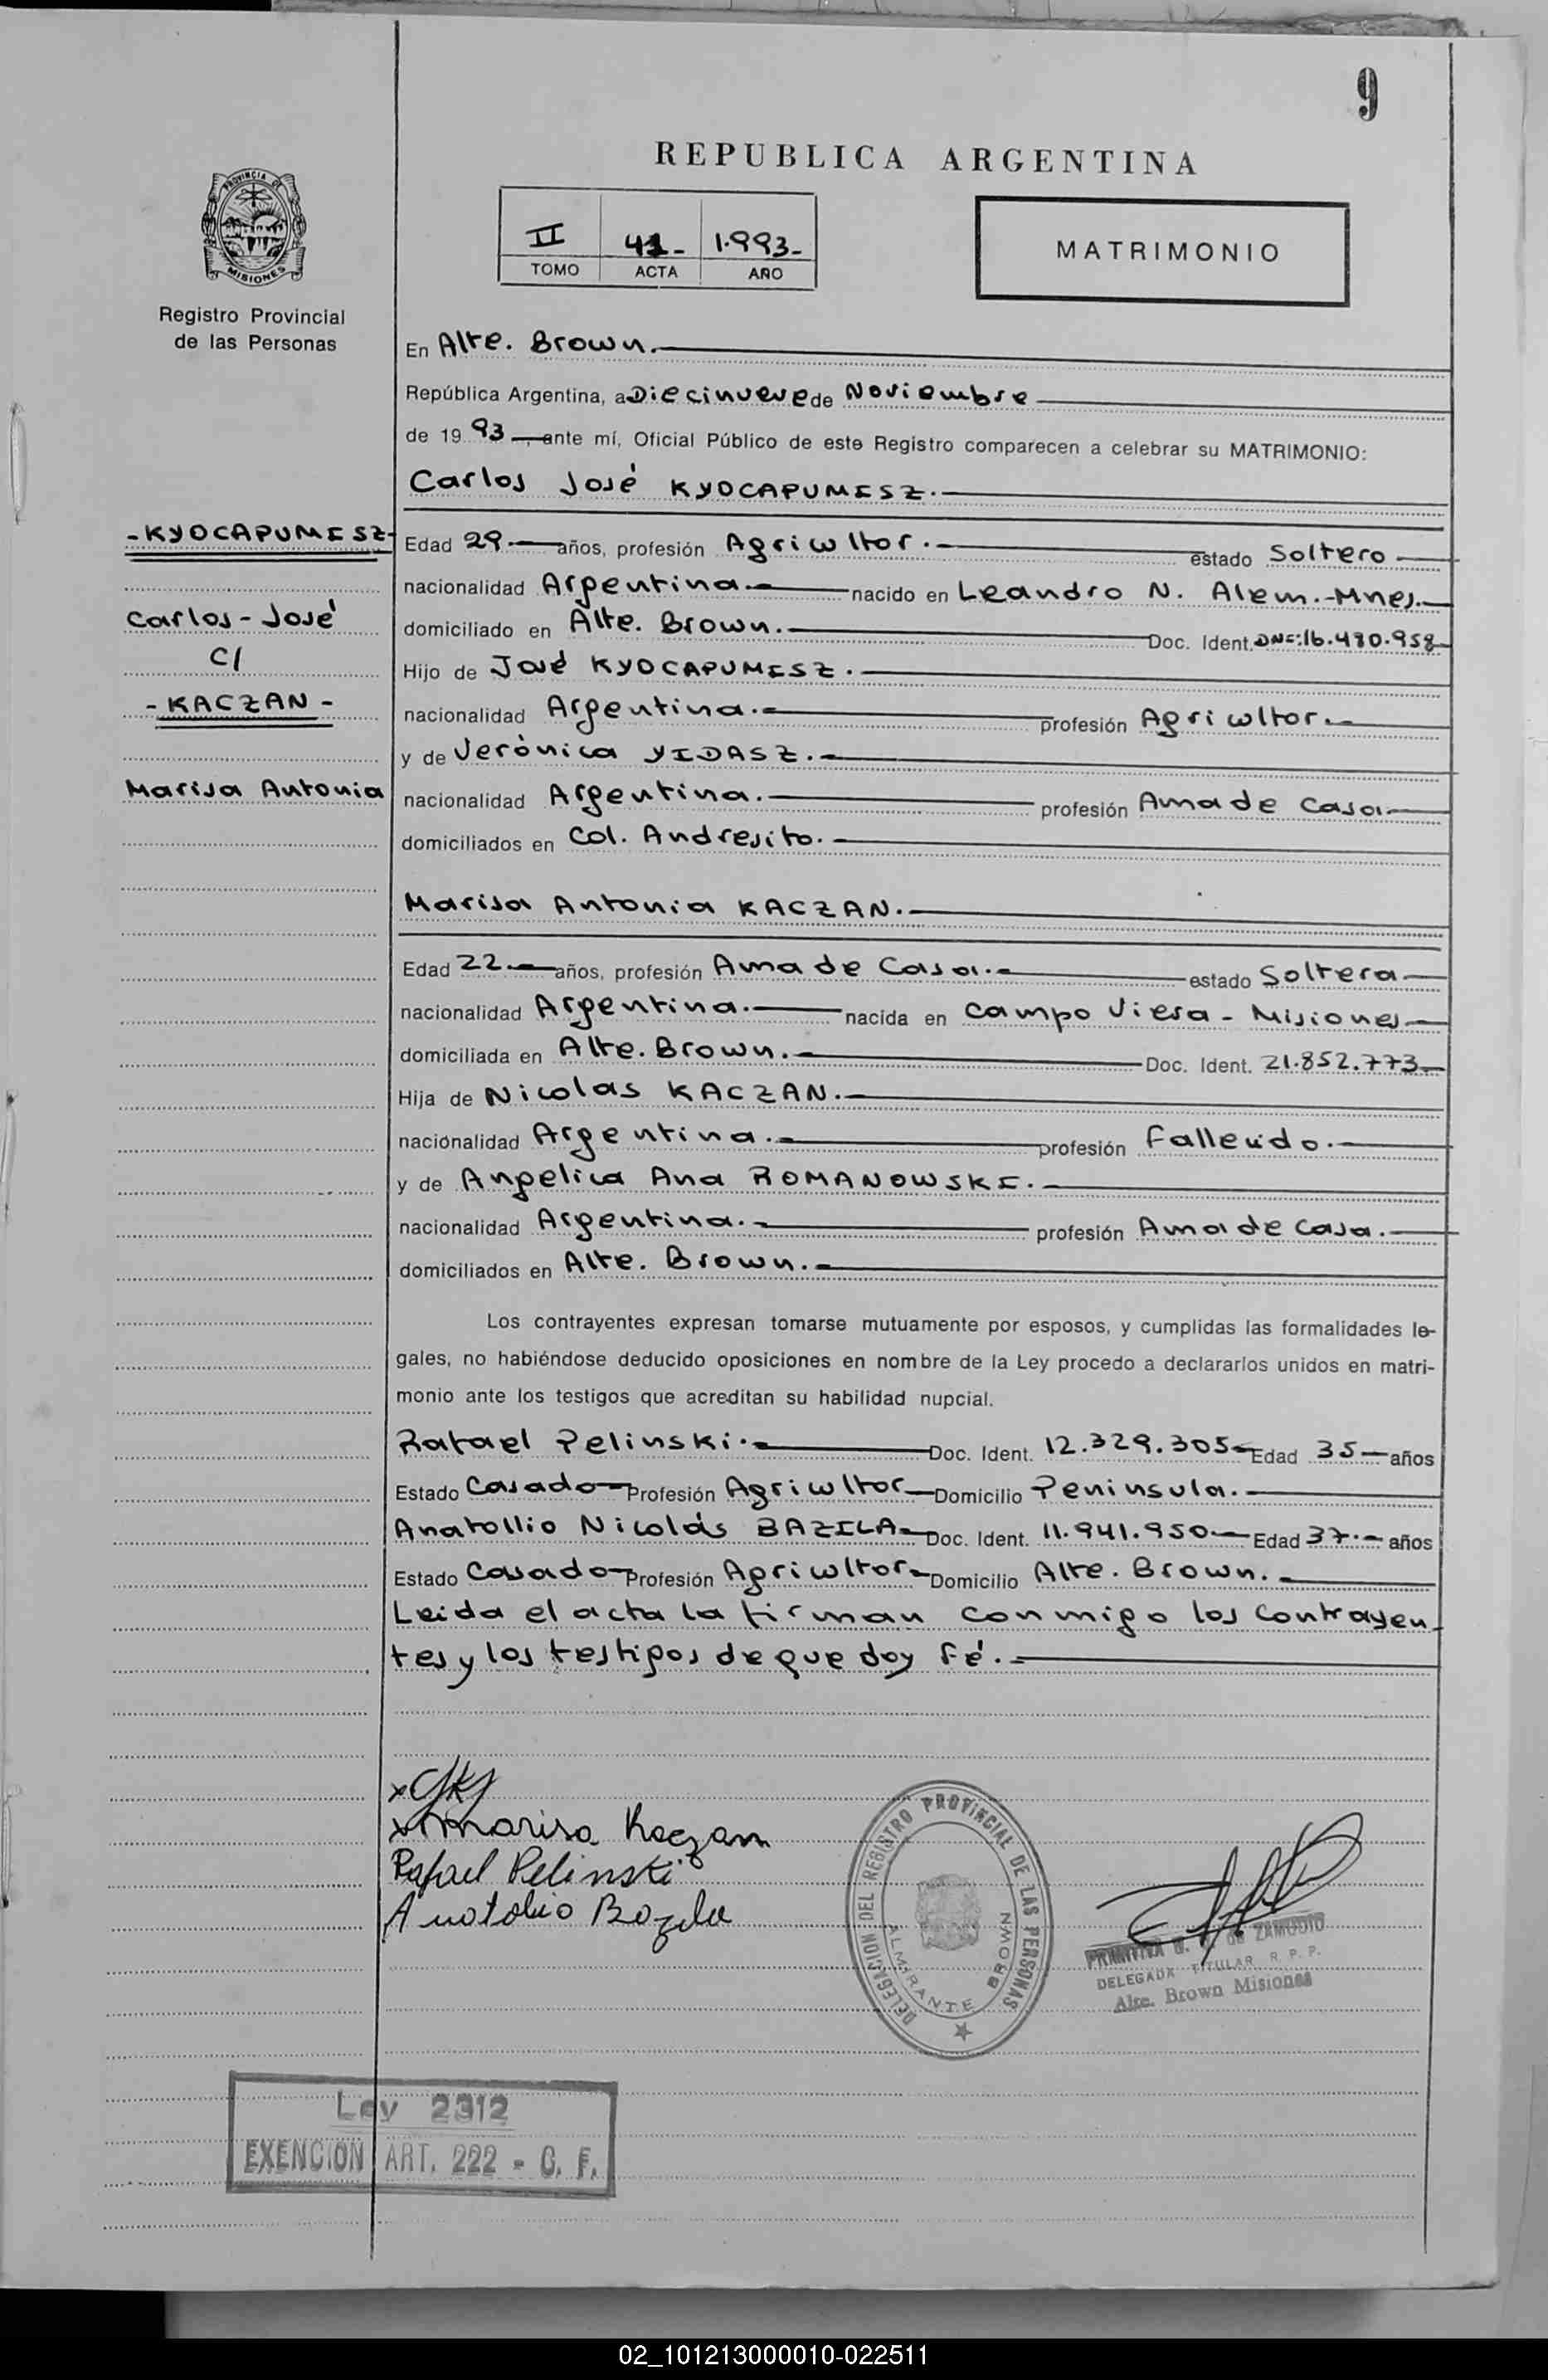 9
REPUBLICA ARGENTINA
PROVINCIA DE
MISIONES
II 41- 1.993-
TOMO ACTA AÑO
MATRIMONIO
Registro Provincial
de las Personas
En Alte. Brown.
República Argentina, a Diecinueve de Noviembre
de 19 93, ante mí, Oficial Público de este Registro comparecen a celebrar su MATRIMONIO:
Carlos José KYOCAPUMISZ.
-KYOCAPUMISZ-
Carlos-José
C/
-KACZAN-
Marisa Antonia
Edad 29.- años, profesión Agricultor.- estado Soltero
nacionalidad Argentina.- nacido en Leandro N. Alem.-Mnes.-
domiciliado en Alte. Brown.- Doc. Ident. DNI:16.480.958-
Hijo de José KYOCAPUMISZ.-
nacionalidad Argentina.- profesión Agricultor.-
y de Verónica YIDASZ.-
nacionalidad Argentina.- profesión Ama de Casa.-
domiciliados en Col. Andresito.-
Marisa Antonia KACZAN.-
Edad 22.- años, profesión Ama de Casa.- estado Soltera
nacionalidad Argentina.- nacida en Campo Viera - Misiones-
domiciliada en Alte. Brown.- Doc. Ident. 21.852.773-
Hija de Nicolas KACZAN.-
nacionalidad Argentina.- profesión Fallecido.-
y de Angelica Ana ROMANOWSKI.-
nacionalidad Argentina.- profesión Ama de Casa.-
domiciliados en Alte. Brown.-
Los contrayentes expresan tomarse mutuamente por esposos, y cumplidas las formalidades le-
gales, no habiéndose deducido oposiciones en nombre de la Ley procedo a declararlos unidos en matri-
monio ante los testigos que acreditan su habilidad nupcial.
Rafael Pelinski.- Doc. Ident. 12.329.305- Edad 35- años
Estado Casado- Profesión Agricultor- Domicilio Peninsula.-
Anatollio Nicolás BAZILA- Doc. Ident. 11.941.950- Edad 37.- años
Estado Casado- Profesión Agricultor- Domicilio Alte. Brown.-
Leida el acta la firman conmigo los Contrayen-
tes y los testigos de que doy Fé.-
x Marisa Kaczan
Rafael Pelinski
Anatolio Bazila
DELEGACION DEL REGISTRO PROVINCIAL DE LAS PERSONAS
ALMIRANTE BROWN
DE ZAMUDIO
DELEGADA TITULAR R. P. P.
Alte. Brown Misiones
Ley 2312
EXENCION ART. 222 - C. F.
02_101213000010-022511